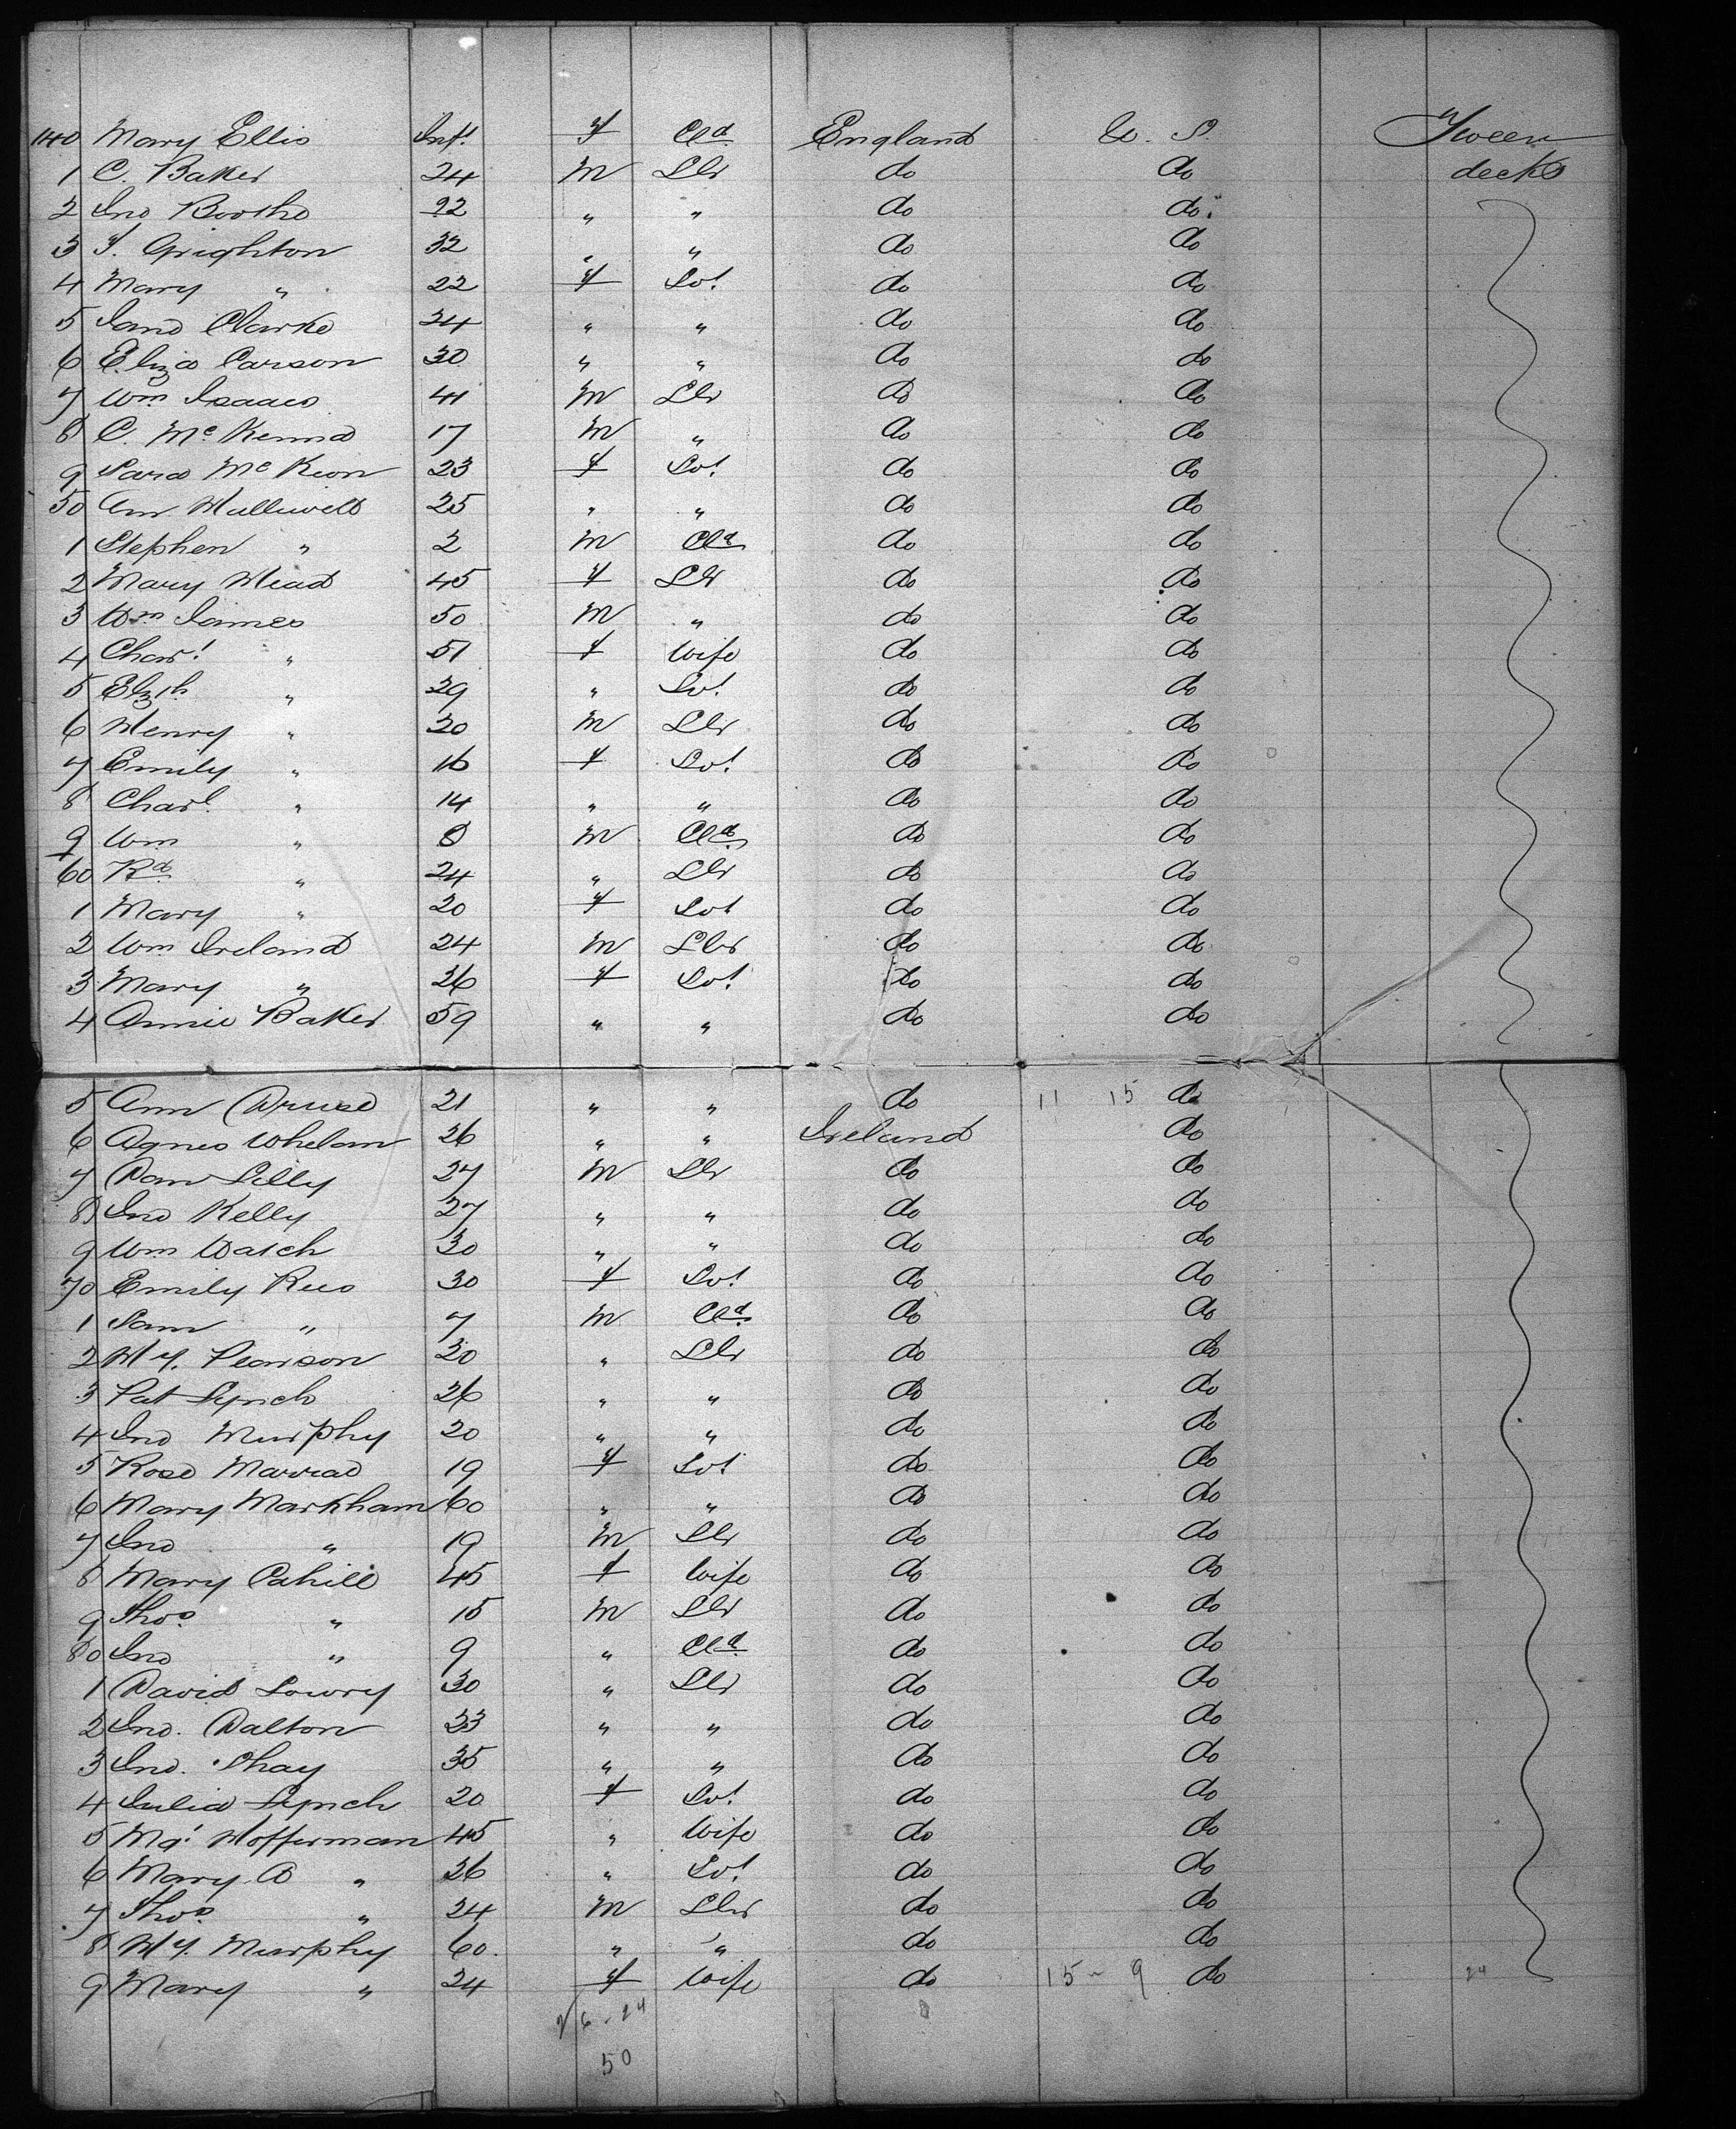 140 Mary Ellis Inft. f Cld. England U. S. Tween
1 C. Baker 24 m Lbr do do decks
2 Jno Booth 22 " " do do.
3 T. Grighton 32 " " do do
4 Mary " 22 f Svt. do do
5 Jane Clarke 24 " " do do
6 Eliza Carson 30 " " do do
7 Wm Isaacs 41 m Lbr do do
8 C. McKenna 17 m " do do
9 Sara McKeon 23 f Svt. do do
50 Ann 25 " " do do
1 Stephen " 2 m Cld do do
2 Mary Mead 45 f Lbr do do
3 Wm James 50 m " do do
4 Chart. " 51 f Wife do do
5 Elzth " 29 " Svt. do do
6 Henry " 20 m Lbr do do
7 Emily " 16 f Svt. do do
8 Charl. " 14 " " do do
9 Wm " 8 m Cld do do
60 Rd " 24 " Lbr do do
1 Mary " 20 f Svt do do
2 Wm Ireland 24 m Lbr do do
3 Mary " 26 f Svt. do do
4 Annie Baker 59 " " do do
5 Ann Druse 21 " " do 11 15 do
6 Agnes Whelan 26 " " Ireland do
7 Dan Lilly 27 m Lbr do do
8 Jno Kelly 27 " " do do
9 Wm Walch 30 " " do do
70 Emily Rees 30 f Svt. do do
1 Sam " 7 m Cld. do do
2 Hy. Pearson 20 " Lbr do do
3 Pat Lynch 26 " " do do
4 Jno Murphy 20 " " do do
5 Rose 19 f Svt do do
6 Mary Markham 60 " " do do
7 Jno " 19 m Lbr do do
8 Mary Cahill 45 f Wife do do
9 Thos " 15 m Lbr do do
80 Jno " 9 " Cld. do do
1 David Lowry 30 " Lbr do do
2 Jno. Dalton 23 " " do do
3 Jno. Shay 35 " " do do
4 Julia Lynch 20 f Svt. do do
5 Mgt Hofferman 45 " Wife do do
6 Mary A " 26 " Svt. do do
7 Thos. " 24 m Lbr do do
8 Hy. Murphy 60. " " do do
9 Mary " 24 f Wife do 15 - 9 do 24
26 - 24
50